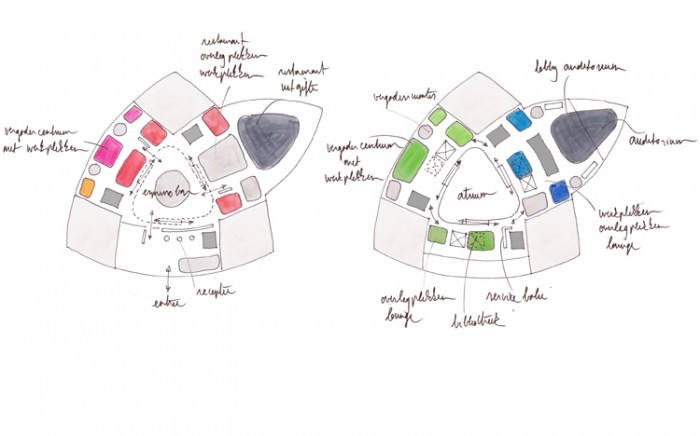 restaurant
overlegplekken
werkplekken
restaurant
uitgifte
vergadercentrum
met werkplekken
espressobar
entree
receptie
lobby auditorium
vergaderruimtes
auditorium
vergadercentrum
met
werkplekken
atrium
werkplekken
overlegplekken
lounge
overlegplekken
lounge
bibliotheek
service balie